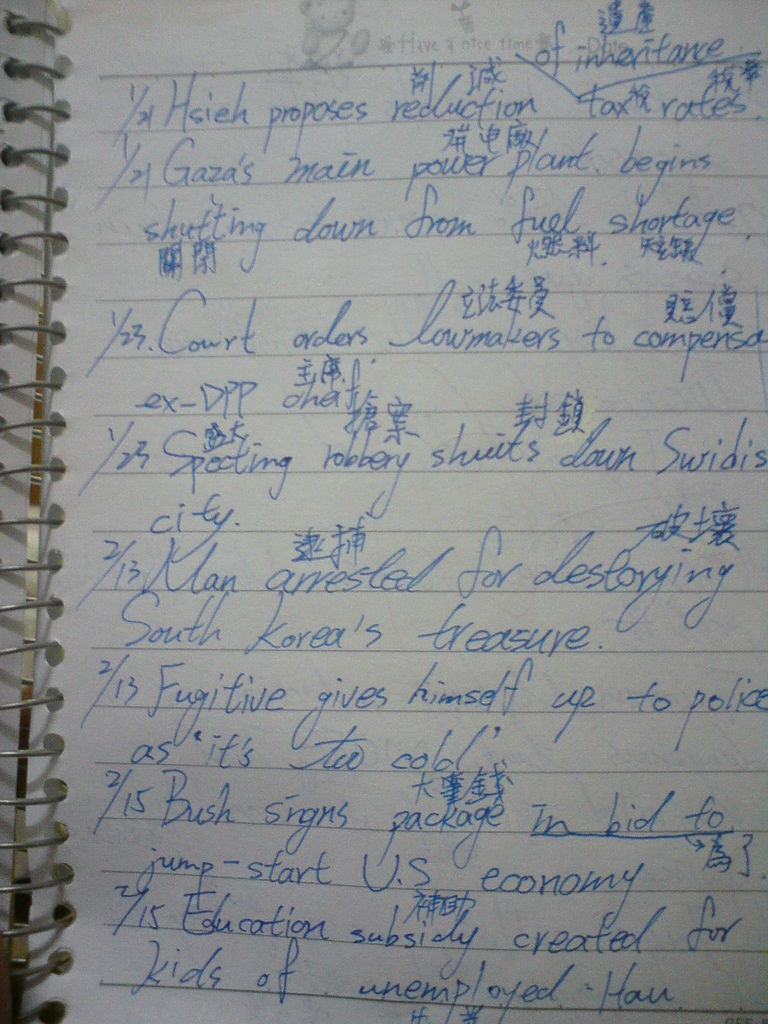 Have a nice time
遺產
of inheritance
削減 稅 稅率
1/21 Hsieh proposes reduction tax rates.
發电廠
1/21 Gaza's main power plant begins
shutting down from fuel shortage.
關閉 燃料 短缺
立法委員 賠償
1/23. Court orders lowmakers to compensa
主席
ex-DPP cheif.
搶案 封鎖
1/23 Specting robbery shuits down Swidis
city.
逮捕 破壞
2/13 Man arrested for destorying
South Korea's treasure.
2/13 Fugitive gives himself up to police
as "it's too cold"
大筆錢
2/15 Bush signs package in bid to
→為了
jump-start U.S economy
補助
2/15 Education subsidy created for
kids of unemployed: Hau